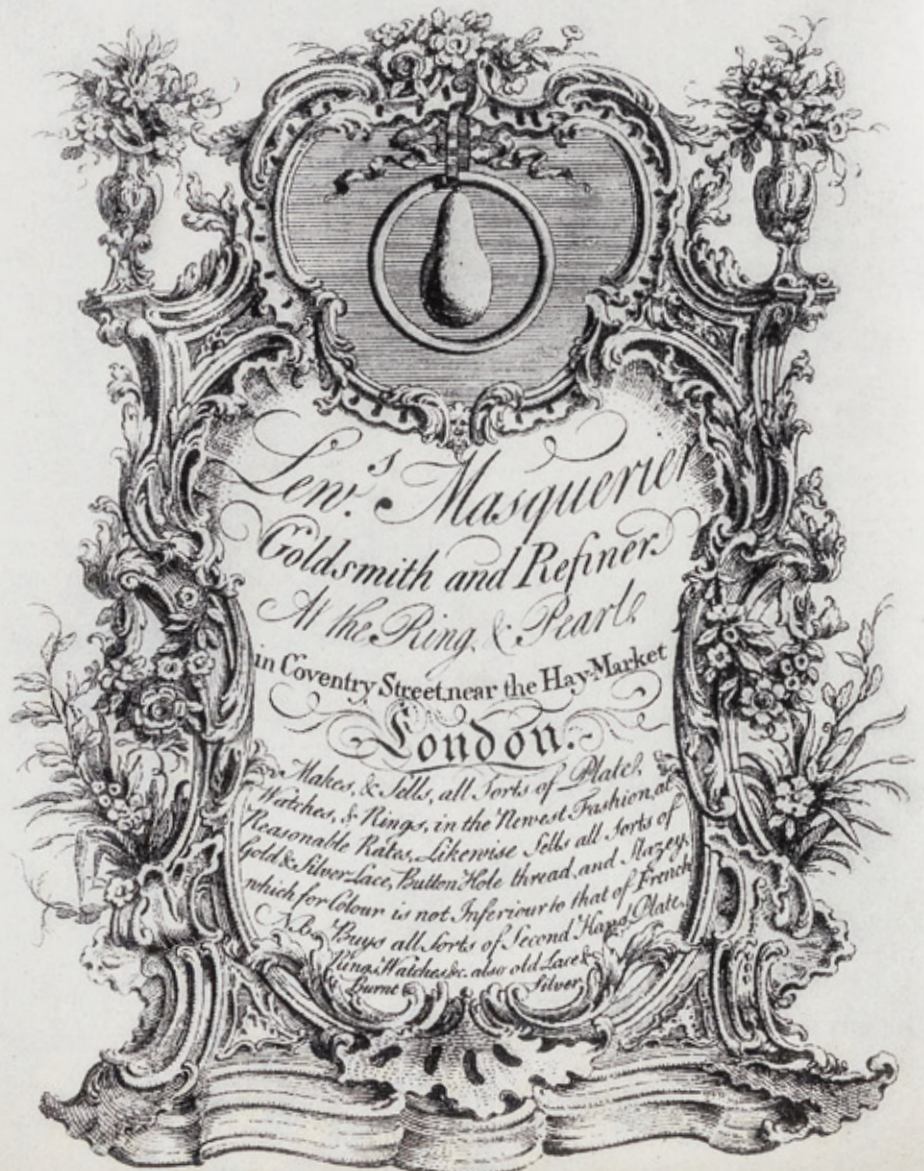 Lew.s Masquerier
Goldsmith and Refiner.
At the Ring & Pearl,
in Coventry Street, near the Hay-Market
London.
Makes, & Sells, all Sorts of Plate,
Watches, & Rings, in the Newest Fashion, at
Reasonable Rates, Likewise Sells all Sorts of
Gold & Silver Lace, Button Hole thread, and
which for Colour is not Inferiour to that of French
NB. Buys all Sorts of Second Hand Plate,
Rings, Watches &c. also old Lace &
Burnt Silver.